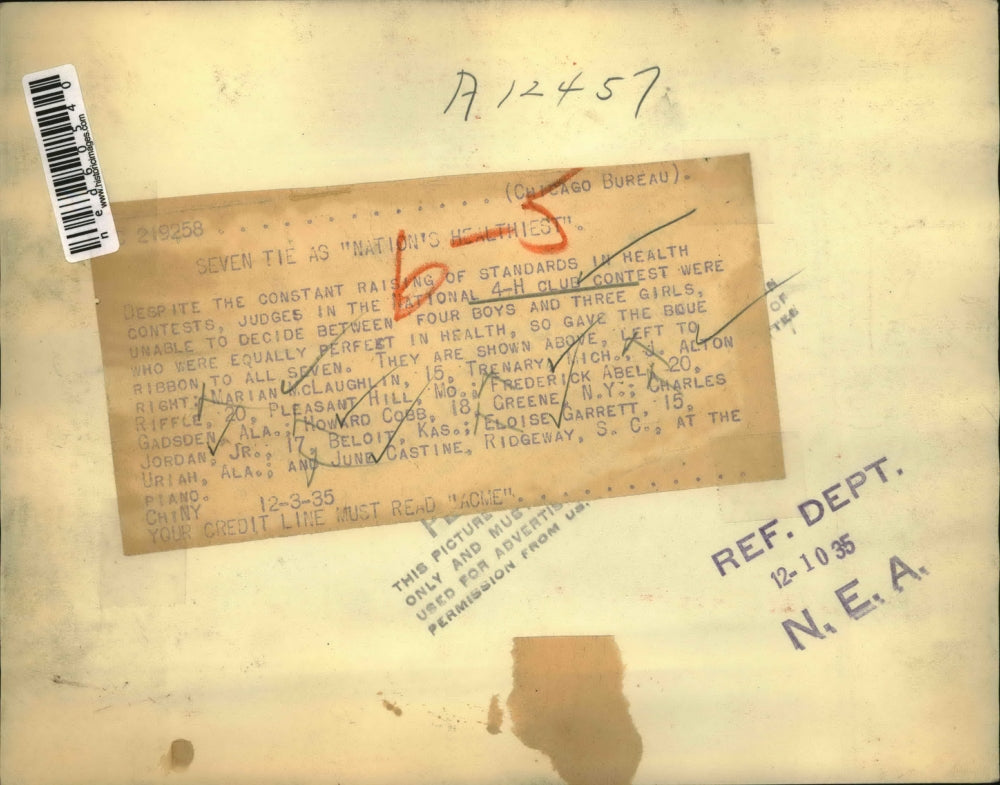 A 12457
www.historicimages.com
219258 (CHICAGO BUREAU).
6-5
SEVEN TIE AS "NATION'S HEALTHIEST".
DESPITE THE CONSTANT RAISING OF STANDARDS IN HEALTH
CONTESTS, JUDGES IN THE NATIONAL 4-H CLUB CONTEST WERE
UNABLE TO DECIDE BETWEEN FOUR BOYS AND THREE GIRLS,
WHO WERE EQUALLY PERFECT IN HEALTH, SO GAVE THE BLUE
RIBBON TO ALL SEVEN. THEY ARE SHOWN ABOVE, LEFT TO
RIGHT: MARIAN MCLAUGHLIN, 15, TRENARY, MICH.; J. ALTON
RIFFLE, 20, PLEASANT HILL, MO.; FREDERICK ABEL, 20,
GADSDEN, ALA.; HOWARD COBB, 18, GREENE, N.Y.; CHARLES
JORDAN, JR., 17, BELOIT, KAS.; ELOISE GARRETT, 15,
URIAH, ALA.; AND JUNE CASTINE, RIDGEWAY, S. C., AT THE
PIANO.
CHINY 12-3-35
YOUR CREDIT LINE MUST READ "ACME".
OF
THIS PICTURE
ONLY AND MUS
USED FOR ADVERTIS
PERMISSION FROM US.
REF. DEPT.
12-10 35
N. E. A.